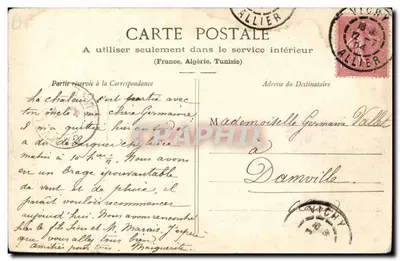 VICHY
ALLIER
CARTE POSTALE
A utiliser seulement dans le service intérieur
(France, Algérie, Tunisie)
Partie réservée à la Correspondance
Adresse du Destinataire
La chaleur s'est portée avec
ton oncle ma chère Germaine
Il m'a quittée hier
a dû débarquer chez
matin à 10 h Nous avons
eu un orage épouvantable
de vent et de pluie, il
paraît vouloir recommencer
aujourd'hui. Nous avons rencontré
le fils et M. Marais. J'espère
que vous allez tous bien
amitiés pour tous. Marguerite
Mademoiselle Germaine Vallet
à
Damville
VICHY